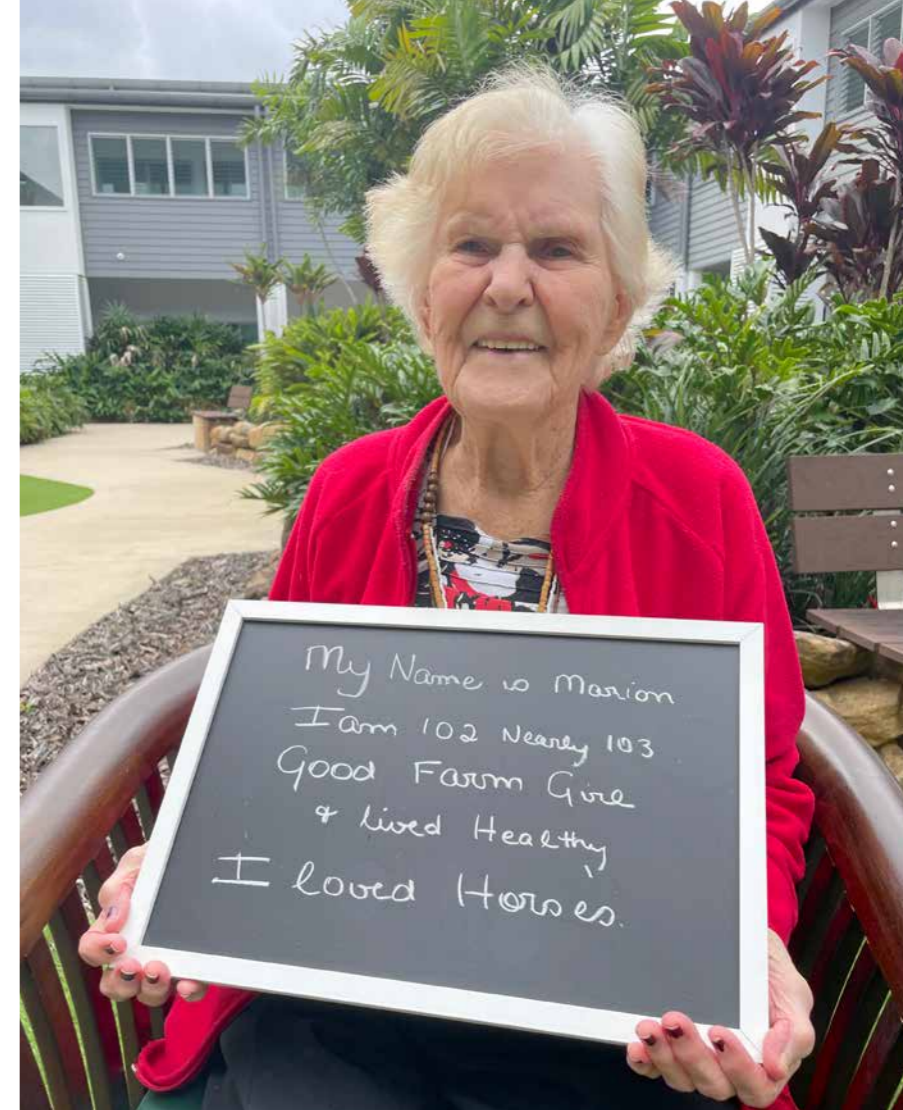 My Name is Marion
I am 102 Nearly 103
Good Farm Girl
& lived Healthy
I loved Horses.